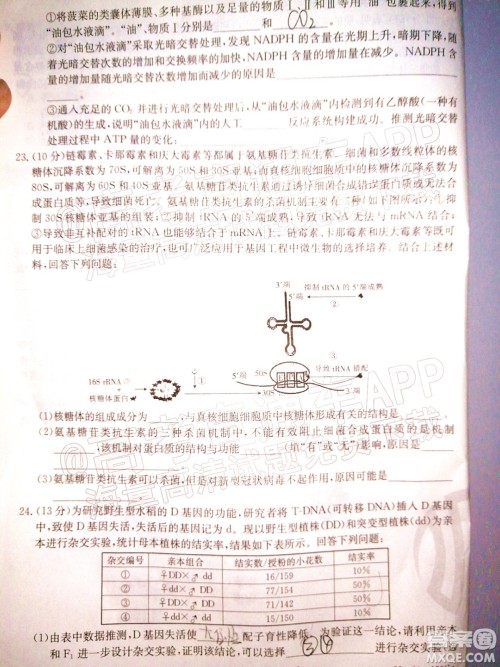 ①将菠菜的类囊体薄膜、多种基酶以及足量的物质Ⅰ、Ⅱ和Ⅲ等用“油”包裹起来，得到
“油包水液滴”。“油”、物质Ⅰ分别是 和 CO₂ 。
②对“油包水液滴”采取光暗交替处理，发现 NADPH 的含量在光期上升，暗期下降，随着
光暗交替次数的增加和交换频率的加快，NADPH 含量的增加量在减少。NADPH 含
量的增加量随光暗交替次数增加而减少的原因是
。
③通入充足的 CO₂ 并进行光暗交替处理后，从“油包水液滴”内检测到有乙醇酸(一种有
机酸)的生成，说明“油包水液滴”内的人工 反应系统构建成功。推测光暗交替
处理过程中 ATP 量的变化：
23.(10分)链霉素、卡那霉素和庆大霉素等都属于氨基糖苷类抗生素。细菌和多数线粒体的核
糖体沉降系数为 70S，可解离为 50S 和 30S 亚基；而真核细胞细胞质中核糖体沉降系数为
80S，可解离为 60S 和 40S 亚基。氨基糖苷类抗生素通过诱导细菌合成错误蛋白质或无法合
成蛋白质等，导致细菌死亡。氨基糖苷类抗生素的杀菌机制主要有三种(如下图所示)：①抑
制 30S 核糖体亚基的组装；②抑制 tRNA 的 5'端成熟，导致 tRNA 无法与 mRNA 结合；
③导致非互补配对的 tRNA 也能够结合于 mRNA 上。链霉素、卡那霉素和庆大霉素等既可
用于临床上细菌感染的治疗，也可广泛应用于基因工程中微生物的选择培养。结合上述材
料，回答下列问题：
3'端
5'端
抑制 tRNA 的 5'端成熟
②
③
导致 tRNA 错配
16S rRNA
核糖体蛋白
①
50S
30S
5'端
3'端
(1)核糖体的组成成分为 ，与真核细胞细胞质中核糖体形成有关的结构是 。
(2)氨基糖苷类抗生素的三种杀菌机制中，不能有效阻止细菌合成蛋白质的是机制
，该机制对蛋白质的结构与功能 (填“有”或“无”)影响，原因是
。
(3)氨基糖苷类抗生素可以杀菌，但是对新型冠状病毒不起作用，原因可能是
。
24.(13分)为研究野生型水稻的 D 基因的功能，研究者将 T-DNA(可转移 DNA)插入 D 基因
中，致使 D 基因失活，失活后的基因记为 d。现以野生型植株(DD)和突变型植株(dd)为亲
本进行杂交实验，统计母本植株的结实率，结果如下表所示。回答下列问题：
杂交编号 亲本组合 结实数/授粉的小花数 结实率
① ♀DD×♂dd 16/159 10%
② ♀dd×♂DD 77/154 50%
③ ♀DD×♂DD 71/142 50%
④ ♀dd×♂dd 15/150 10%
(1)由表中数据推测，D 基因失活使 配子育性降低。为验证这一结论，请利用亲本
和 F₁ 进一步设计杂交实验，证明上述结论，可以选择 进行杂交实验(